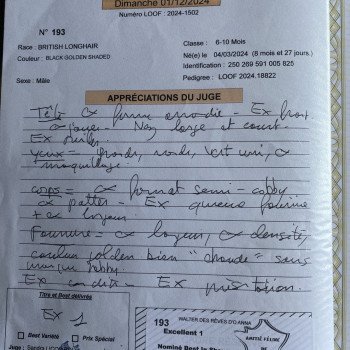 Dimanche 01/12/2024
Numéro LOOF : 2024-1502
N° 193
Race : BRITISH LONGHAIR
Couleur : BLACK GOLDEN SHADED
Sexe : Mâle
Classe : 6-10 Mois
Né(e) le : 04/03/2024 (8 mois et 27 jours)
Identification : 250 269 591 005 826
Pedigree : LOOF 2024.18822
APPRÉCIATIONS DU JUGE
Tête = Ex forme arrondie - Ex front
Ex joues - Nez large et court.
Ex
yeux = grands, ronds, vert uni, Ex
maquillage.
corps = Ex format semi-cobby
Ex pattes - Ex queue fournie
+ Ex
Fourrure = Ex, Ex densité,
couleur golden bien "chaude" sans
marque tabby.
Ex condition - Ex présentation.
Titre et Best délivrés
EX 1
Best Variété
Prix Spécial
Juge :
193
WALTER DES RÊVES D'O ANNA
Excellent 1
Nominé Best in
AMITIÉ FÉLINE